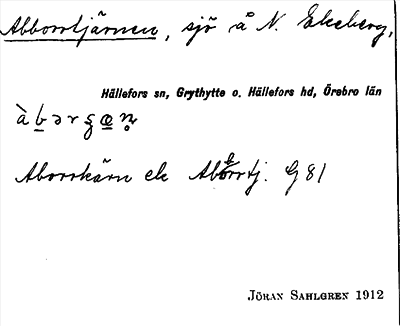 Abborrtjärnen, sjö å N. Ekeberg,
Hällefors sn, Grythytte o. Hällefors hd, Örebro län
Aborrkärn ek Aborrtj. G 81
JÖRAN SAHLGREN 1912